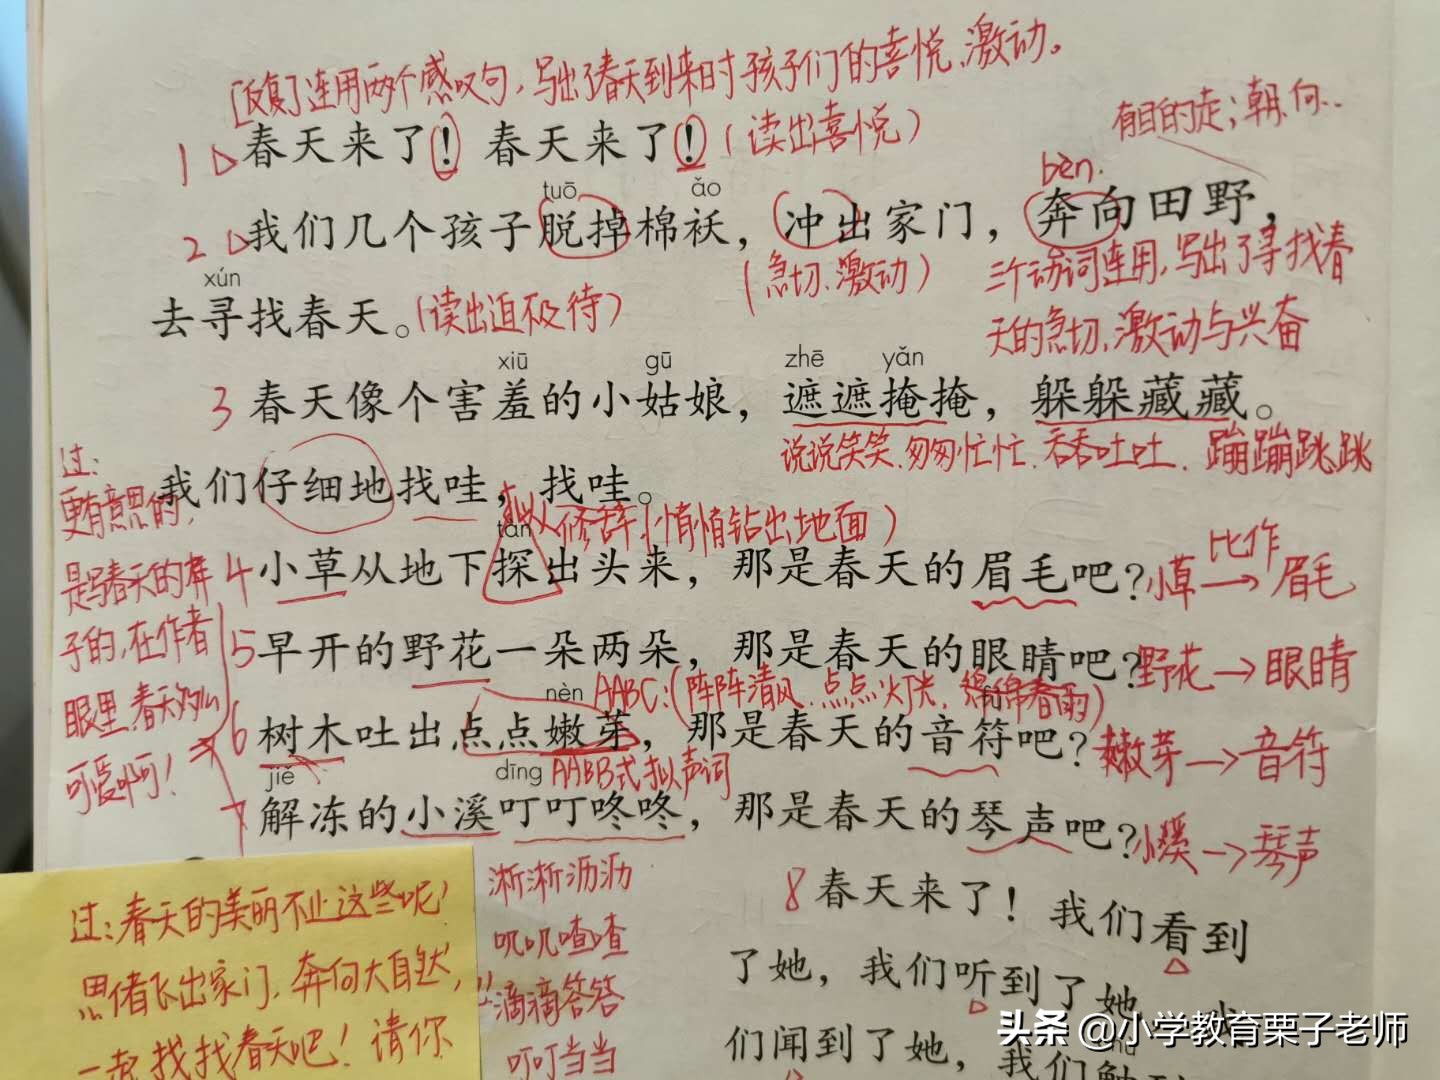 [反复]连用两个感叹句,写出了春天到来时孩子们的喜悦、激动。
有目的走;朝、向..
1 春天来了!春天来了!(读出喜悦)
tuō ǎo bèn.
2 我们几个孩子脱掉棉袄,冲出家门,奔向田野,
(急切、激动) 三个动词连用,写出了寻找春
xún
去寻找春天。(读出迫不及待)
天的急切、激动与兴奋
xiū gū zhē yǎn
3 春天像个害羞的小姑娘,遮遮掩掩,躲躲藏藏。
说说笑笑、匆匆忙忙、吞吞吐吐、蹦蹦跳跳
我们仔细地找哇,找哇。
拟人修辞(悄悄钻出地面)
tàn
4 小草从地下探出头来,那是春天的眉毛吧?小草→眉毛
比作
5 早开的野花一朵两朵,那是春天的眼睛吧?野花→眼睛
nèn AABC:(阵阵清风、点点灯光、绵绵春雨)
6 树木吐出点点嫩芽,那是春天的音符吧?嫩芽→音符
jiě dīng AABB式拟声词
7 解冻的小溪叮叮咚咚,那是春天的琴声吧?小溪→琴声
过:
更有意思的,
是写春天的样
子的,在作者
眼里,春天多么
可爱啊!
淅淅沥沥
叽叽喳喳
滴滴答答
叮叮当当
8 春天来了!我们看到
了她,我们听到了她
们闻到了她,我们触到
过:春天的美丽不止这些呢!
思绪飞出家门,奔向大自然,
一起找找春天吧!请你
头条 @小学教育栗子老师